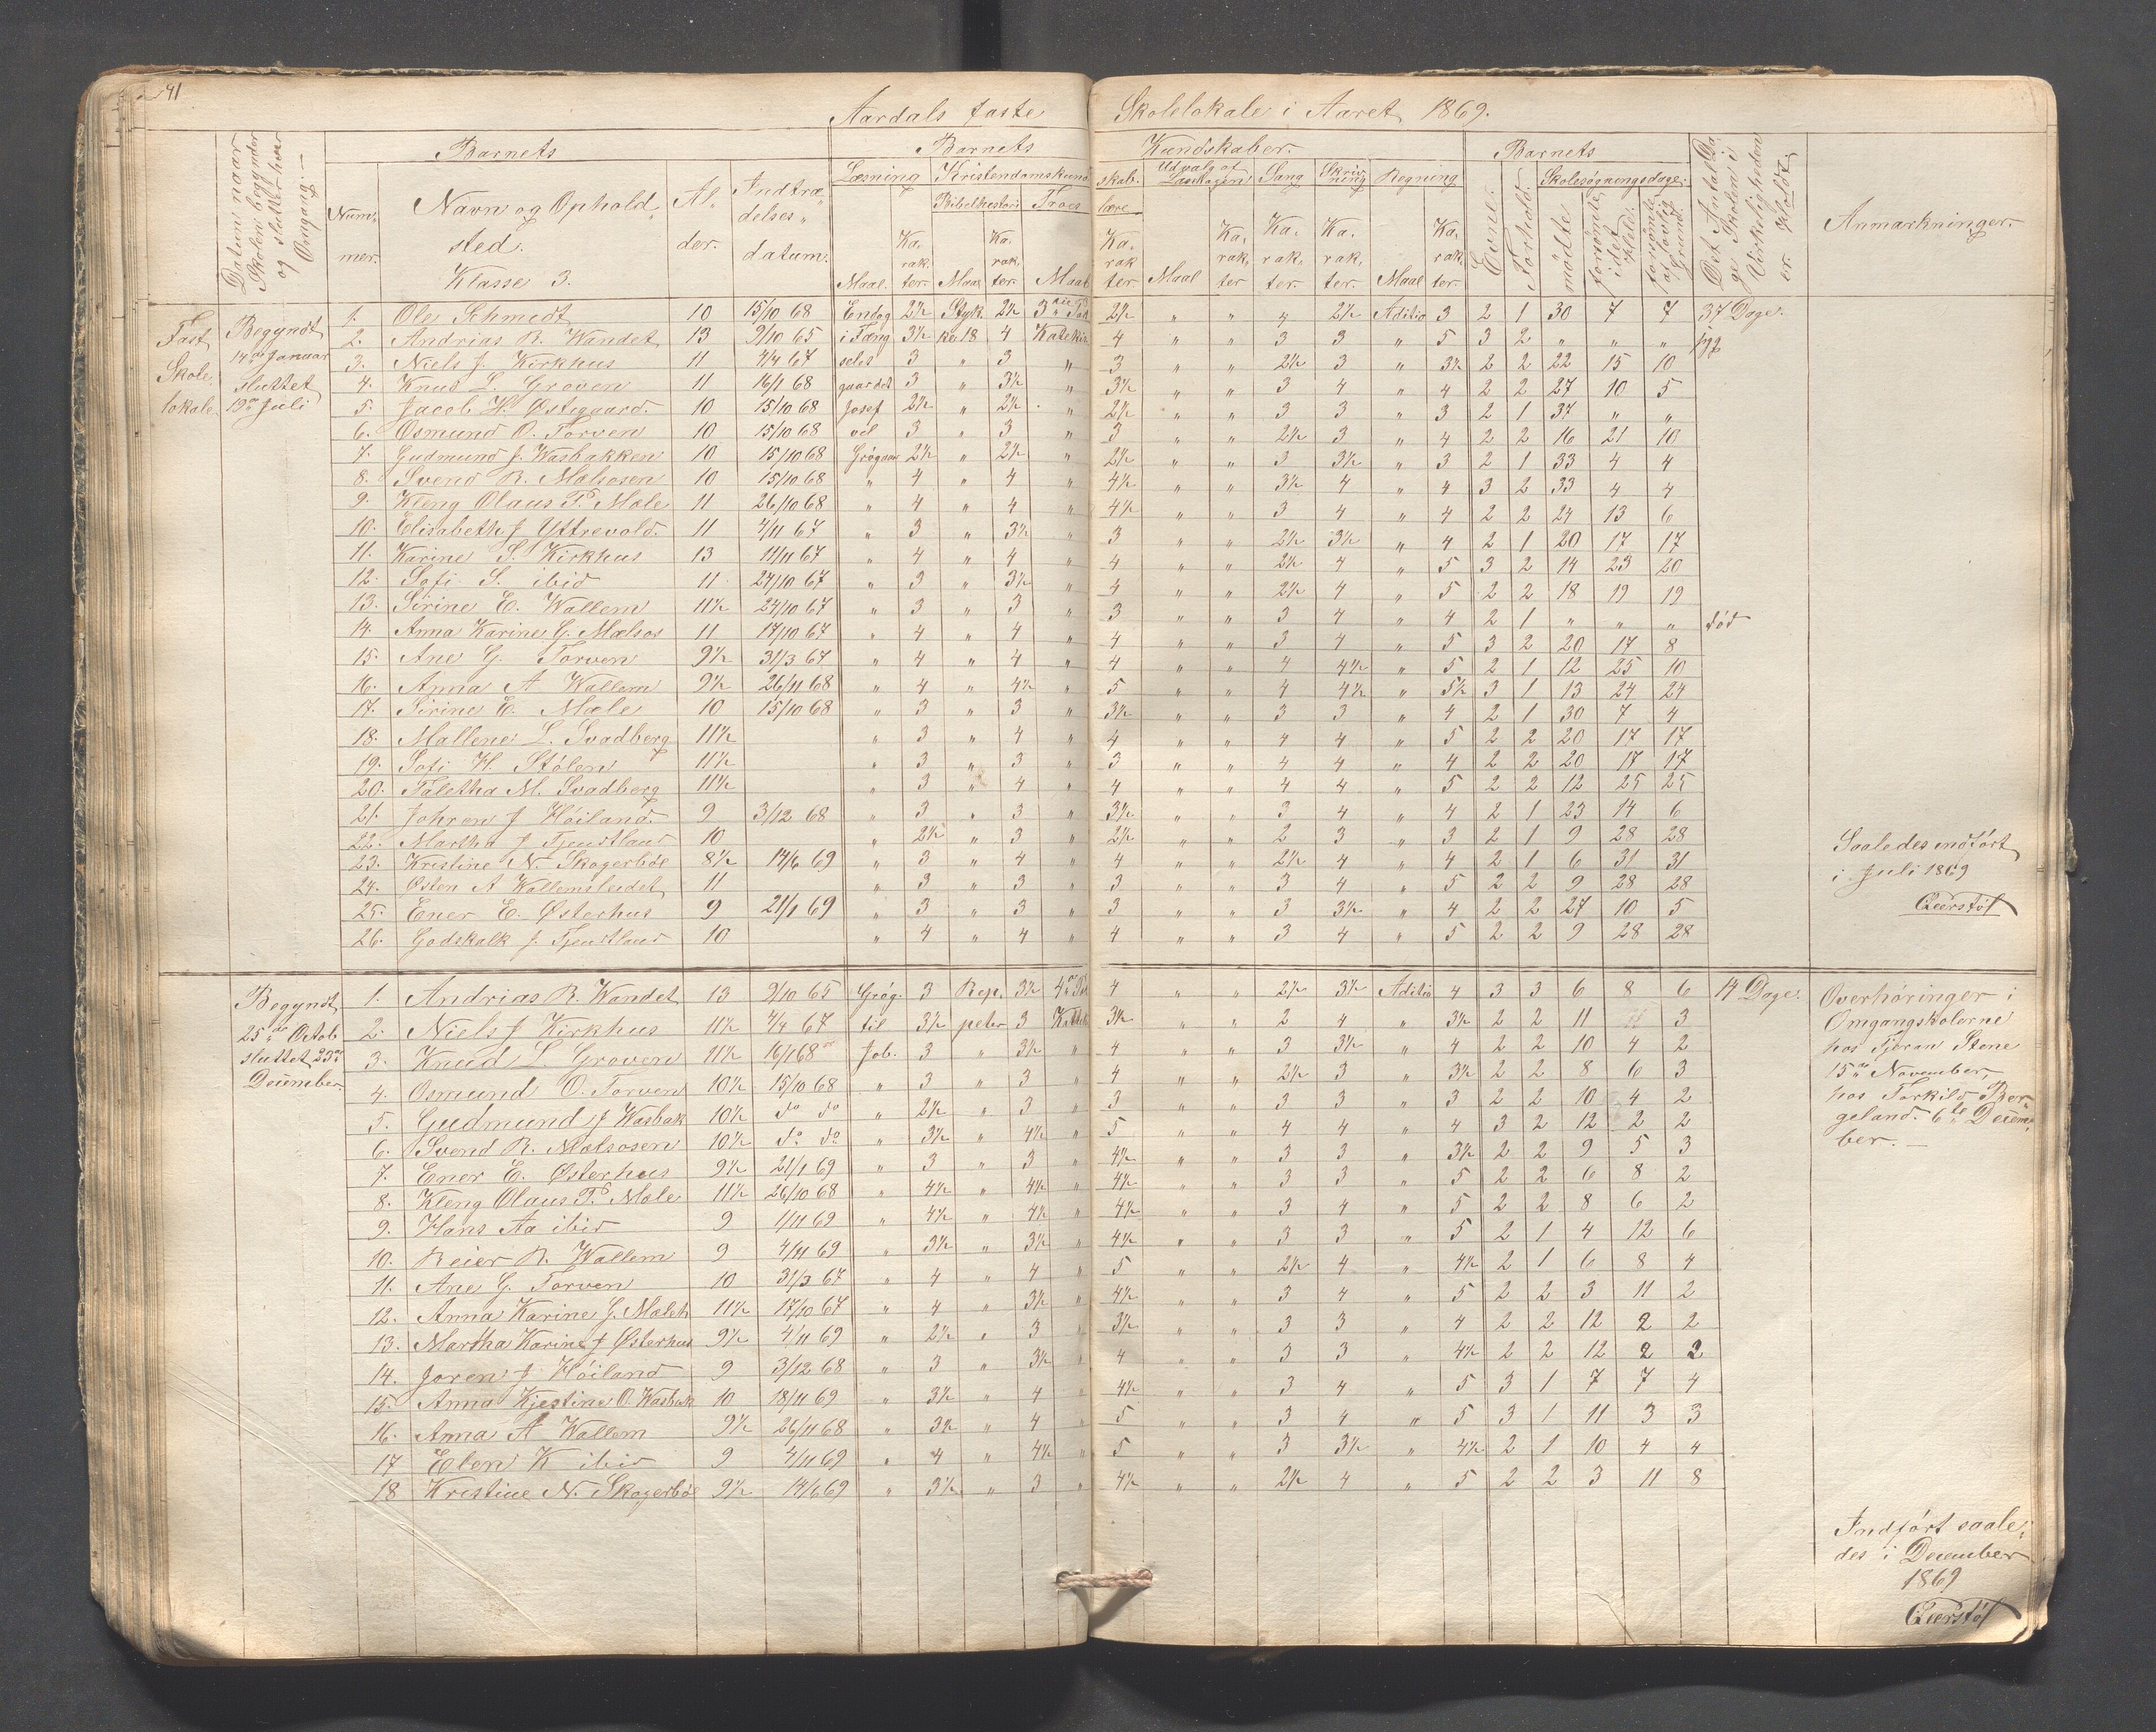 41
Aardals faste Skolelokale i Aaret 1869.
Datum naar Skolen begynder og slutter hver Omgang.
Num- mer.
Barnets
Navn og Ophold sted.
Klasse 3.
Al- der.
Indtræ- delses datum.
Barnets Kundskaber.
Læsning Kristendomskund skab. Udvalg af Læsebogen Sang Skriv- ning Regning
Bibelhistori Troes lære
Maal. Ka. rak. ter. Maal Ka. rak. ter. Maal Ka. rak ter Maal Ka. rak. ter Ka. rak. ter. Ka. rak. ter. Maal Ka. rak. ter.
Barnets
Evne. Forhold.
Skolesøgningsdage.
mødte forsømte i det Hele. forsømte af lovlig Grund.
Det Antal Da- ge Skolen i Virkeligheden er holdt.
Anmærkninger.
Fast Skole lokale.
Begyndt 14de Januar sluttet 19de Juli
1. Ole Schmidt 10 15/10 68 Endog 2½ Styk. 2½ 3die 2½ " " 4 2½ Aditio 3 2 1 30 7 7 37 Dage.
2. Andrias R. Wandet 13 9/10 65 i Fæng 3½ ke 18 4 Katekis 4 " " 3 3 " 5 3 2 " " "
3. Niels J. Kirkhus 11 4/4 67 selet 3 " 3 " 3 " " 2½ 3 " 3½ 2 2 22 15 10
4. Knud L. Groven 11 16/1 68 gaardet 3 " 3½ " 3½ " " 3 4 " 4 2 2 27 10 5
5. Jacob H. Østigaard. 10 15/10 68 Josef 2½ " 2½ " 2½ " " 3 3 " 3 2 1 37 " "
6. Osmund O. Torven 10 15/10 68 3 " 3 " 3 " " 2½ 3 " 4 2 2 16 21 10
7. Gudmund J. Wasbakken 10 15/10 68 2½ " 2½ " 2½ " " 3 3½ " 3 2 1 33 4 4
8. Svend R. Mælsosen 10 15/10 68 " 4 " 4 " 4½ " " 3½ 4 " 4 3 2 33 4 4
9. Kleng Olaus P. Mæle 11 26/10 68 " 4 " 4 " 4½ " " 3 4 " 4 2 2 24 13 6
10. Elisabeth J Yttrevold. 11 4/11 67 " 3 " 3½ " 3 " " 2½ 3½ " 4 2 1 20 17 17
11. Karine S. Kirkhus 13 11/11 67 " 4 " 4 " 4 " " 2½ 4 " 5 3 2 14 23 20
12. Sofi S. ibid 11 27/10 67 " 3 " 3½ " 4 " " 2½ 4 " 5 2 2 18 19 19
13. Sirine E. Wallem 11½ 24/10 67 " 3 " 3 " 3 " " 3 4 " 4 2 1 " " " død
14. Anna Karine G. Mælsos 11 17/10 67 " 4 " 4 " 4 " " 3 4 " 5 3 2 20 17 8
15. Ane G. Torven 9½ 31/3 67 " 4 " 4 " 4 " " 4 4½ " 5 2 1 12 25 10
16. Anna A Wallem 9½ 26/11 68 " 4 " 4½ " 5 " " 4 4½ " 5½ 3 1 13 24 24
17. Sirine E. Mæle 10 15/10 68 " 3 " 3 " 3½ " " 3 3 " 4 2 1 30 7 4
18. Mallene L. Svadberg 11½ " 3 " 4 " 4 " " 4 4 " 5 2 2 20 17 17
19. Sofi H. Stølen 11½ " 3 " 3 " 3 " " 4 4 " 4 2 2 20 17 17
20. Taletha M. Svadberg 11½ " 3 " 4 " 4 " " 4 4 " 5 2 2 12 25 25
21. Johren J Høiland 9 3/12 68 " 3 " 3 " 3½ " " 3 4 " 4 2 1 23 14 6
22. Martha J Tjentland 10 " 2½ " 3 " 2½ " " 2 3 " 3 2 1 9 28 28
23. Kristine N. Skogerbøe 8½ 14/6 69 " 3 " 4 " 4 " " 2½ 4 " 4 2 1 6 31 31
24. Osten A Wallemsleidet 11 " 3 " 3 " 3 " " 3 4 " 5 2 2 9 28 28
25. Ener E. Østerhus 9 21/1 69 " 3 " 3 " 3 " " 3 3½ " 4 2 2 27 10 5
26. Godskalk J. Tjentland 10 " 4 " 4 " 4 " " 3 4 " 5 2 2 9 28 28
Saaledes indført
i Juli 1869
Begyndt 25de Octob sluttet 23de December.
1. Andrias R. Wandet 13 9/10 65 Grøg. 3 Rep. 3½ 4 " " 2½ 3½ Aditio 4 3 3 6 8 6 14 Dage.
2. Niels J Kirkhus 11½ 4/4 67 til 3½ peter 3 3½ " " 2 4 " 3½ 2 2 11 3
3. Knud L. Groven 11½ 16/1 68 Job. 3 " 3½ " 4 " " 3 3½ " 4 2 2 10 4 2
4. Osmund O. Torven 10½ 15/10 68 " 3 " 3 " 4 " " 2½ 3 " 3½ 2 2 8 6 3
5. Gudmund J Wasbak 10½ do do " 2½ " 3 " 3 " " 3 3 " 3 2 2 10 4 2
6. Svend R. Mælsosen 10½ do do " 3½ " 4½ " 5 " " 4 4 " 4 3 2 12 2 2
7. Ener E. Østerhus 9½ 21/1 69 " 3 " 3 " 4½ " " 3 3 " 3½ 2 2 9 5 3
8. Kleng Olaus P. Mæle 11½ 26/10 68 " 4½ " 4½ " 4½ " " 3 3 " 5 2 2 6 8 2
9. Hans Aa ibid 9 1/11 69 " 4½ " 4½ " 4½ " " 3 4 " 5 2 2 8 6 2
10. Reier R. Wallem 9 4/11 69 " 3½ " 3½ " 4½ " " 3 3 " 5 2 1 4 12 6
11. Ane G. Torven 10 31/3 67 " 4 " 4 " 5 " " 2½ 4 " 4½ 2 1 6 8 4
12. Anna Karine G. 11½ 17/10 67 " 4 " 3½ " 4½ " " 3 4 " 5 2 2 3 11 2
13. Martha Karine J Østerhus 9½ 4/11 69 " 2½ " 3 " 3½ " " 3 3 " 4 2 2 12 2 2
14. Joren J. Høiland 9 3/12 68 " 3 " 3½ " 4 " " 3 3 " 4½ 2 2 12 2 2
15. Anna Kjestine O. Wasbak 10 18/11 69 " 3½ " 4 " 4½ " " 3 4 " 5 3 1 7 7 4
16. Anna A Wallem 9½ 26/11 68 " 3½ " 4 " 5 " " 3 4 " 5 3 1 11 3 3
17 Elen K ibid 9 4/11 69 " 4 " 4½ " 5 " " 3 3½ " 4½ 2 1 10 4 4
18 Kristine N. Skogerbøe 9½ 14/6 69 " 3½ " 3 " 4½ " " 2½ 4 " 5 2 2 3 11 8
Overhøringer i
Omgangskolerne
hos Tjeran Stene
15de November,
hos Torkild Ber-
geland. 6te Decem-
ber. —
Indført saale-
des i December
1869